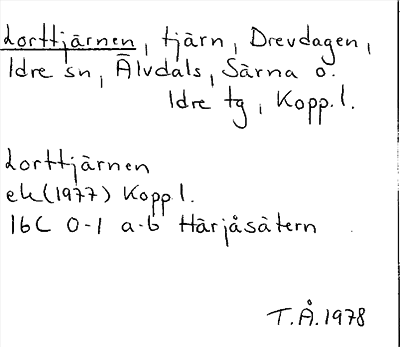 Lorttjärnen, tjärn, Drevdagen,
Idre sn, Älvdals, Särna o.
Idre tg, Kopp.l.
Lorttjärnen
ek (1977) Kopp l.
16C 0-1 a-b Härjåsätern
T.Å.1978